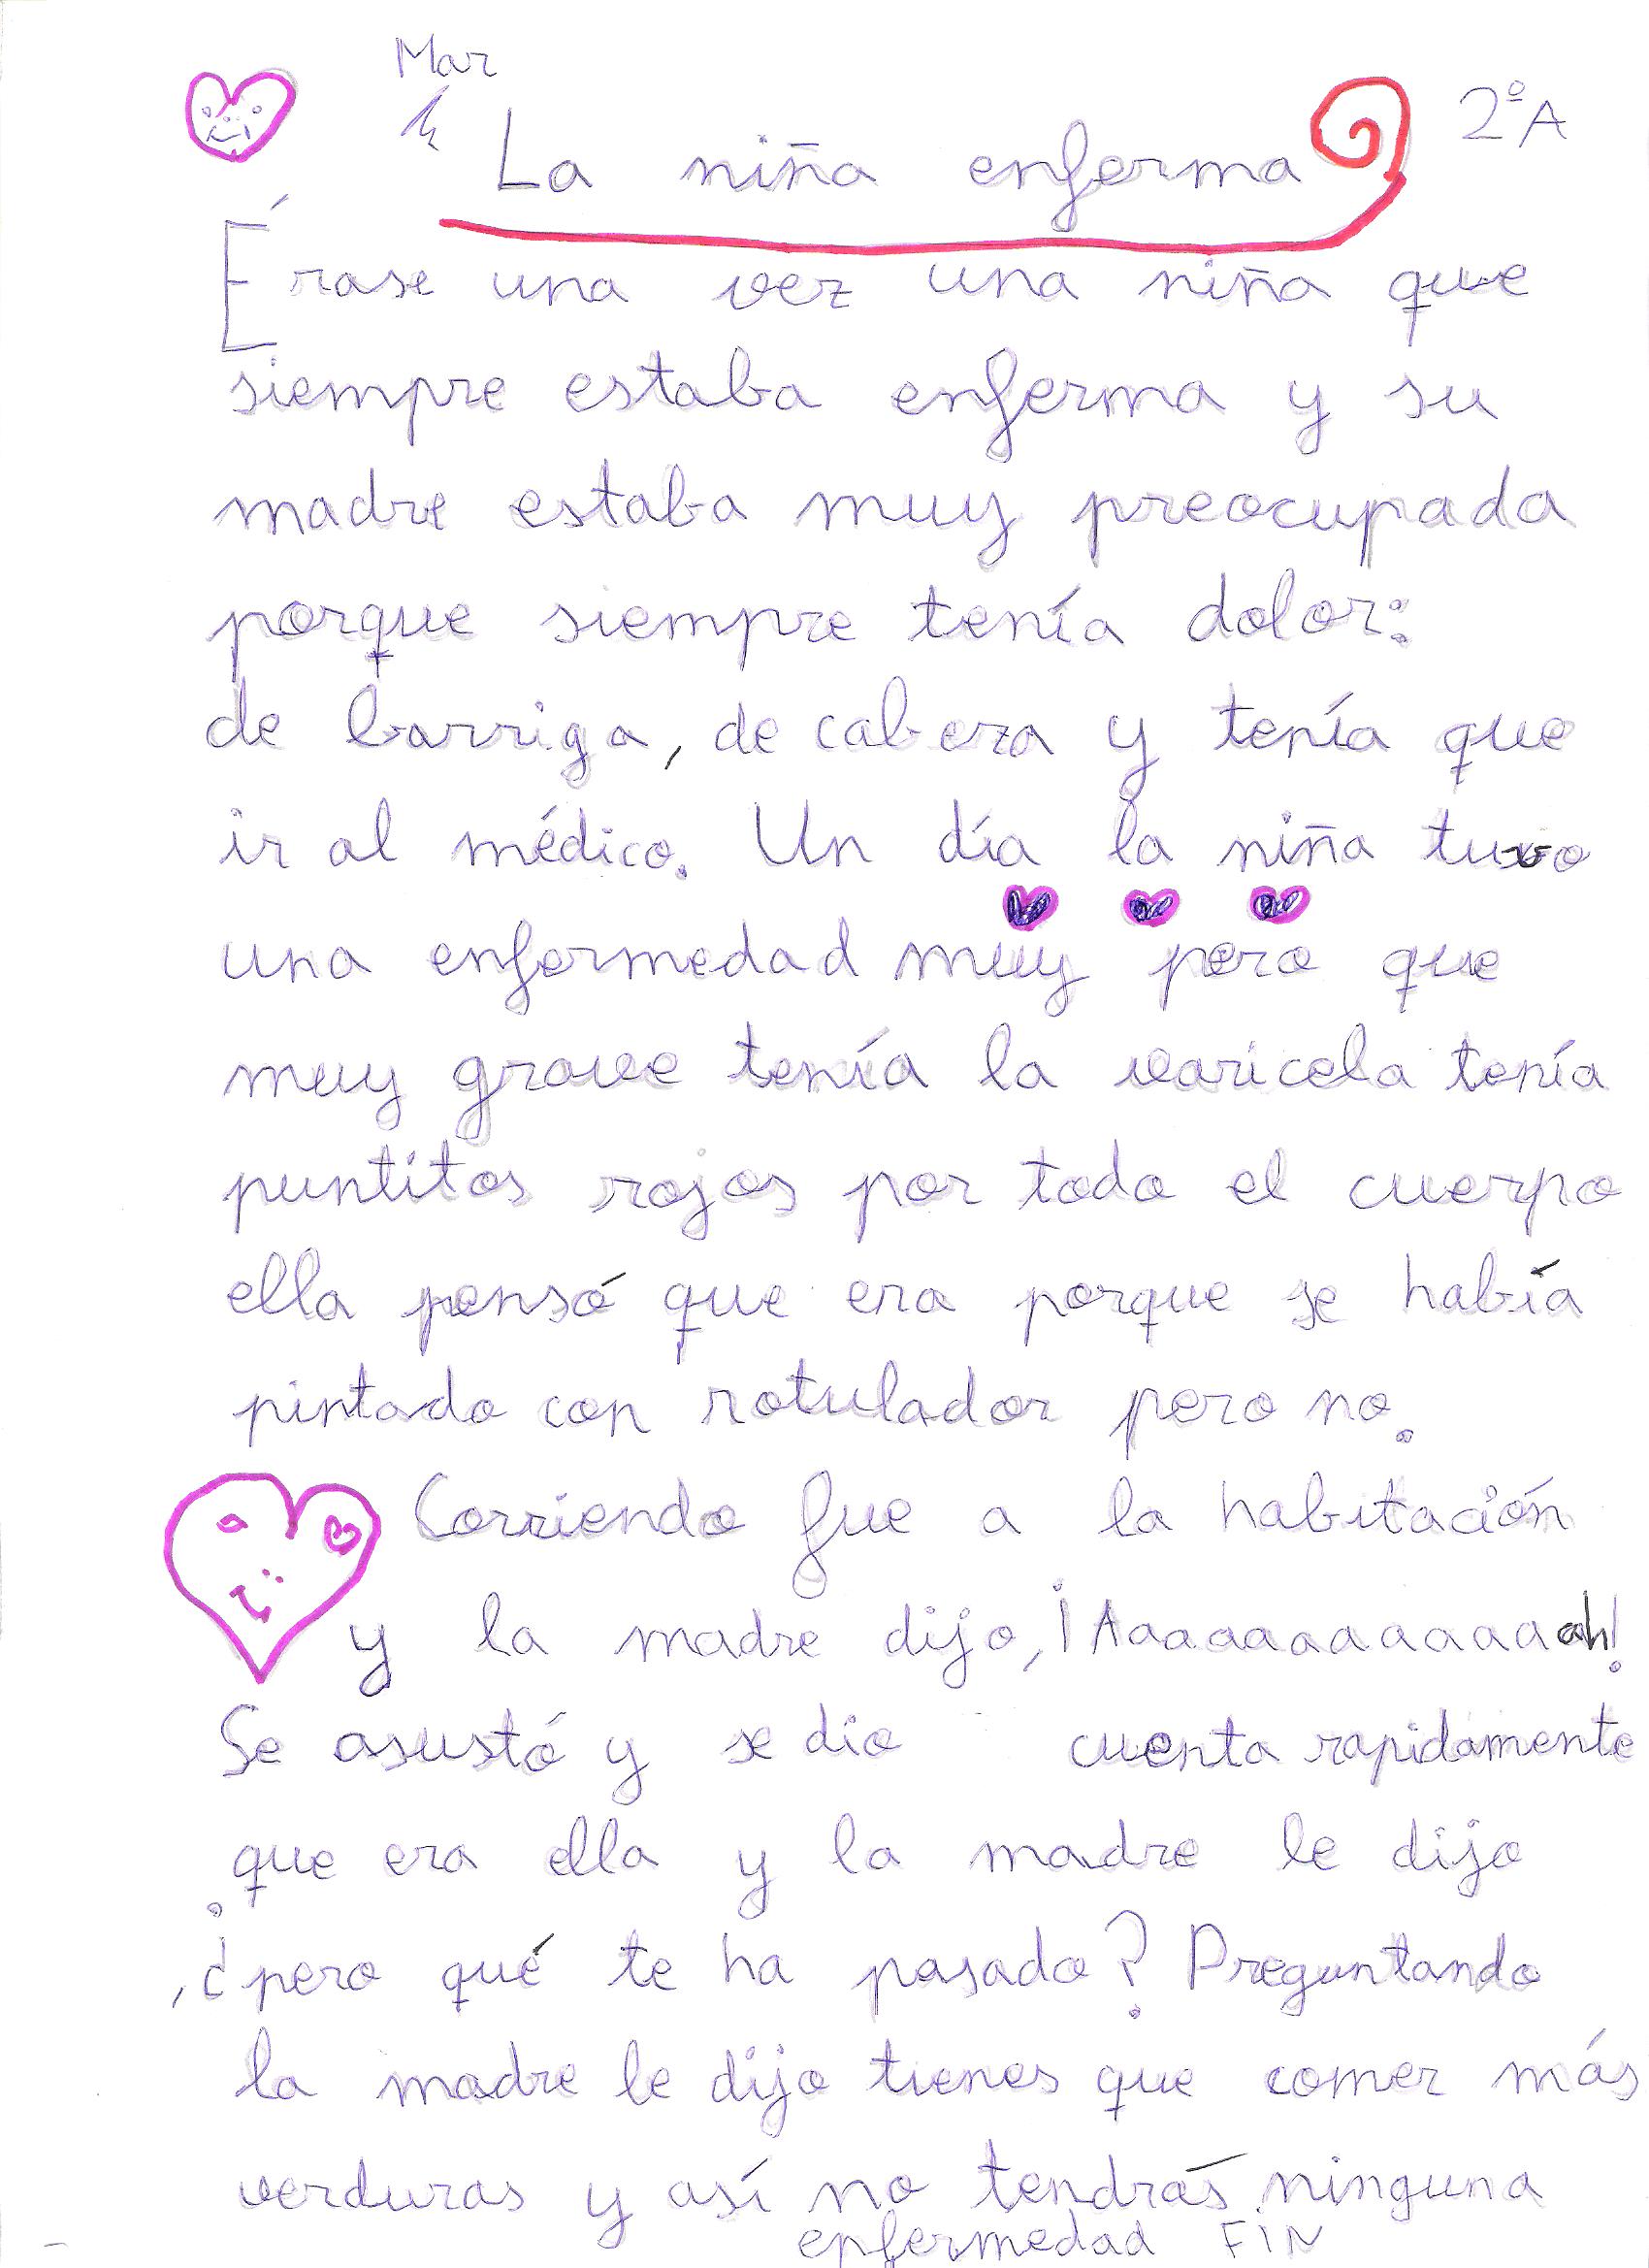 Mar
2º A
La niña enferma
Érase una vez una niña que
siempre estaba enferma y su
madre estaba muy preocupada
porque siempre tenía dolor:
de barriga, de cabeza y tenía que
ir al médico. Un día la niña tuvo
una enfermedad muy pero que
muy grave tenía la varicela tenía
puntitos rojos por todo el cuerpo
ella pensó que era porque se había
pintado con rotulador pero no.
Corriendo fue a la habitación
y la madre dijo, ¡Aaaaaaaaaaaaah!
Se asustó y se dio cuenta rapidamente
que era ella y la madre le dijo
, ¿pero qué te ha pasado? Preguntando
la madre le dijo tienes que comer más
verduras y así no tendrás ninguna
enfermedad FIN